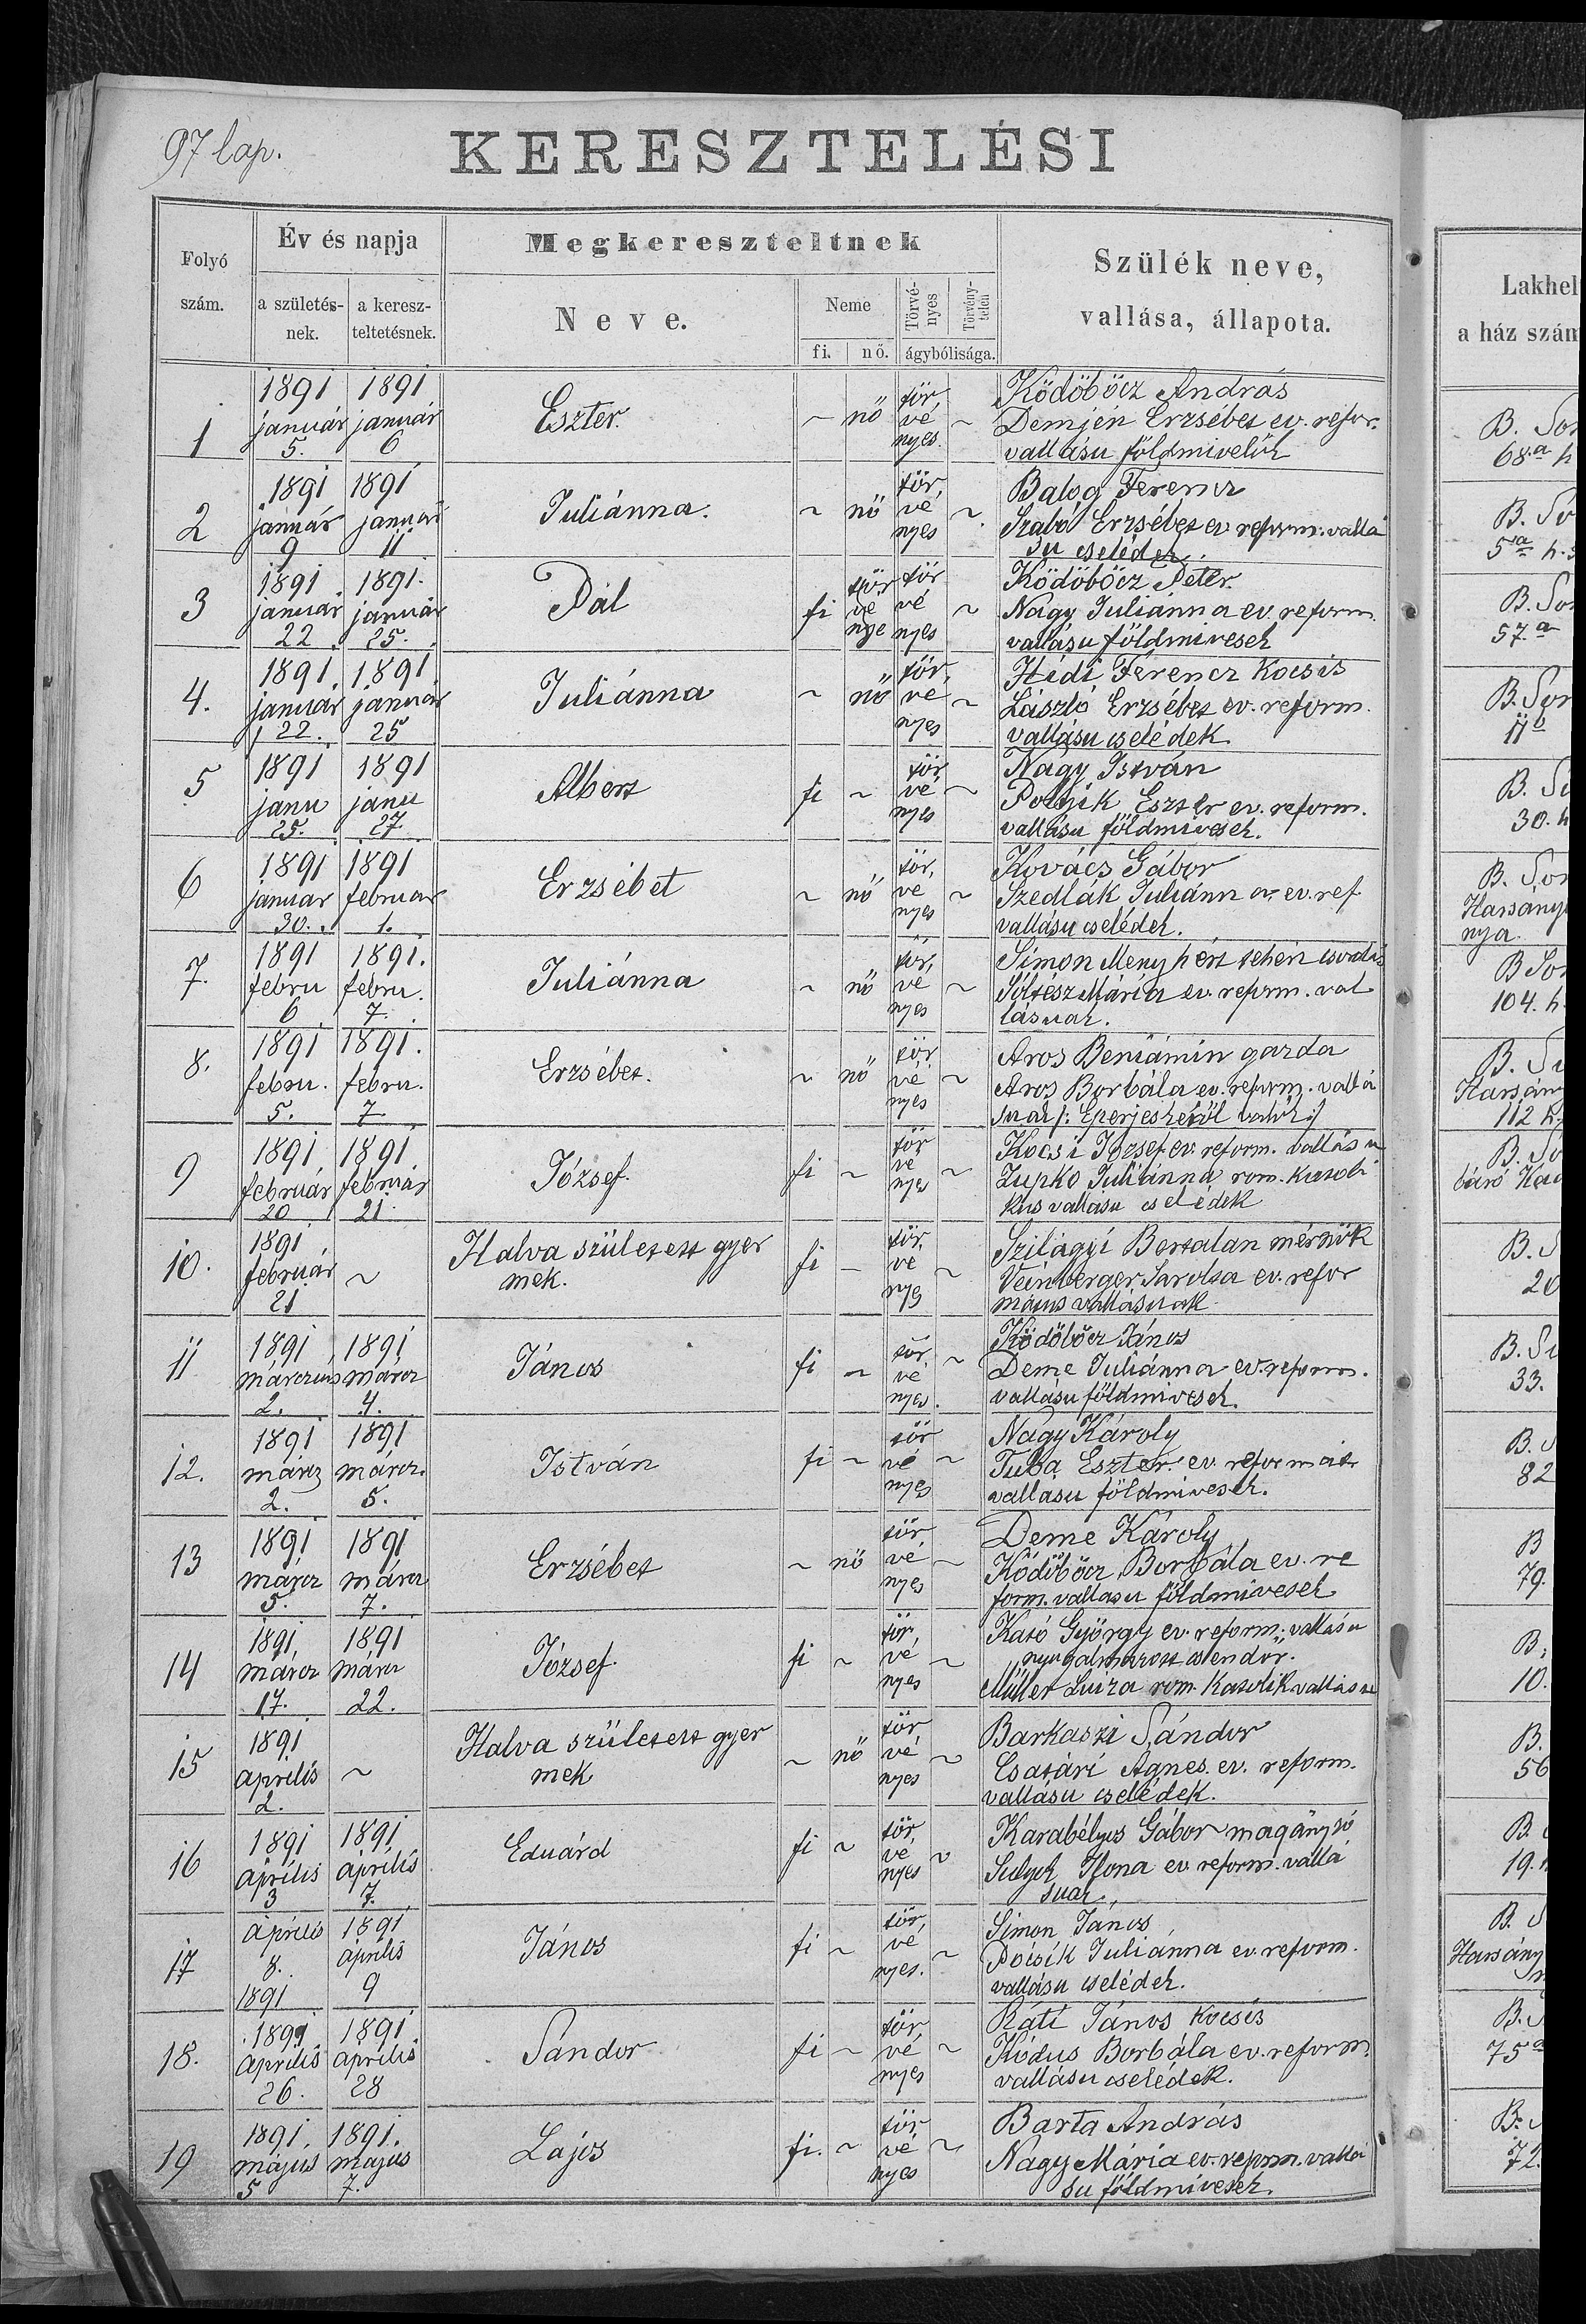 97 lap.
KERESZTELÉSI
Folyó szám.
Év és napja
a születés-nek.
a keresz-teltetésnek.
Megkereszteltnek
Neve.
Neme
fi.
nő.
Törvé-nyes
Törvény-telen
ágybólisága.
Szülék neve,
vallása, állapota.
Lakhel
a ház szám
1
1891 január 5.
1891 január 6
Eszter.
~ nö tör, vé nyes. ~
Ködöböcz András
Demjén Erzsébet ev. refor.
vallásu földmivelök
B. Sor
68.a h
2
1891 január 9
1891 január 11
Juliánna.
~ nö tör, vé, nyes ~
Balog Ferencz
Szabó Erzsébet ev reform. vallá
su cselédek.
B. So
5a h. s
3
1891 január 22
1891. január 25.
Pál
fi tör vé nye tör vé nyes ~
Ködöböcz Péter.
Nagy Juliánna ev. reform.
vallásu földmivesek
B. Sor
57.a
4.
1891 január 22.
1891 január 25
Juliánna
~ nö tör, vé nyes ~
Hidi Ferencz Kocsis
László Erzsébet ev. reform.
vallásu cselédek
B. Sor
11b
5
1891 janu 25.
1891 janu 27.
Albert
fi ~ tör vé nyes ~
Nagy István
Potyik Eszter ev. reform.
vallásu földmivesek.
B. So
30. h
6
1891 januar 30.
1891 februar 1.
Erzsébet
~ nö tör, vé nyes ~
Kovács Gábor
Szedlák Juliánna ev. ref
vallásu cselédek.
B. Sor
Harsányi
nya.
7.
1891 febru 6
1891. febru. 7.
Juliánna
~ nö tör, vé nyes ~
Simon Menyhért tehén csordás
Soltész Mária ev. reform. val
lásuak.
B Sor
104. h.
8.
1891 febru. 5.
1891. febru. 7
Erzsébet.
~ nö tör vé nyes ~
Aros Beniámin gazda
Aros Borbála ev. reform. vallá
suak /: Eperjeskéröl valók :/
B. So
Harsány
112 h.
9
1891 február 20
1891 február 21.
József.
fi ~ tör vé nyes ~
Kocsi József ev. reform. vallásu
Zupko Juliánna rom. katoli
kus vallásu cselédek
B. So
báró Hor
10.
1891 február 21
~
Halva született gyer
mek.
fi – tör, vé nyes ~
Szilágyi Bertalan mérnök
Veinberger Sarolta ev. refor
mátus vallásuak.
B. S
20
11
1891 márczius 2.
1891 márcz 4.
János
fi ~ tör, vé nyes. ~
Ködöböcz János
Deme Juliánna ev. reform.
vallásu földmivesek.
B. So
33.
12.
1891 márcz 2.
1891 márcz. 5.
István
fi ~ tör vé nyes ~
Nagy Károly
Tuba Eszter. ev. reformát
vallásu földmivesek.
B. S
82
13
1891 márcz 5.
1891 márcz 7.
Erzsébet
~ nö tör vé nyes ~
Deme Károly
Ködöböcz Borbála ev. re
form. vallasu földmivesek
B
79.
14
1891, márcz 17.
1891 márcz 22.
József.
fi ~ tör, vé, nyes ~
Kató György ev. reform. vallásu
nyugalmazott csendör.
Müller Luiza rom. Katolik vallásu
B.
10.
15
1891 április 2.
~
Halva született gyer
mek
~ nö tör vé nyes ~
Barkaszi Sándor
Csatári Ágnes. ev. reform.
vallásu cselédek.
B.
56
16
1891 április 3
1891 április 7.
Eduárd
fi ~ tör, vé nyes ~
Karabélyos Gábor magánzó
Sulyok Ilona ev. reform. vallá
suak.
B.
19.
17
április 8. 1891
1891 április 9
János
fi ~ tör, vé nyes. ~
Simon János
Pócsik Juliánna ev. reform.
vallásu cselédek.
B. S
Harsány
18.
1891 április 26.
1891 április 28
Sándor
fi ~ tör vé nyes ~
Ráti János kocsis
Kódus Borbála ev. reform.
vallásu cselédek.
B. S
75a
19
1891. május 5
1891. május 7.
Lajos
fi. ~ tör vé nyes ~
Barta András
Nagy Mária ev. reform. vallá
su földmivesek.
B.
72.